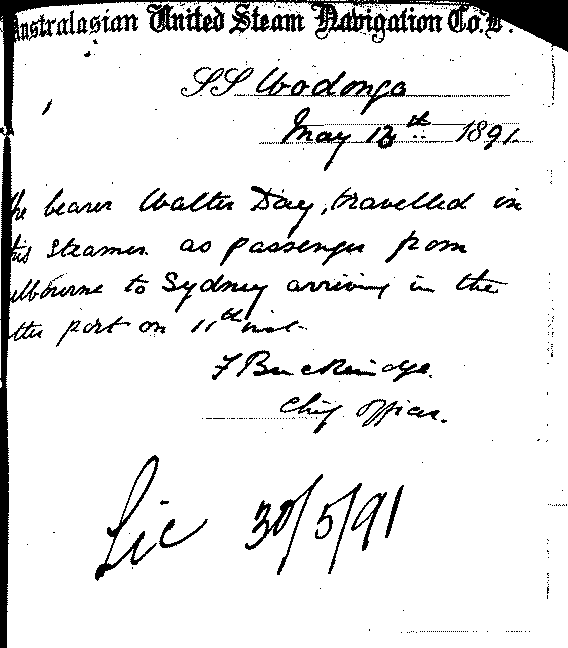 Australasian United Steam Navigation Co. L.
SS Wodonga
May 13th 1891.
The bearer Walter Day, travelled in
this Steamer as passenger from
Melbourne to Sydney arriving in the
latter port on 11th inst.
F Buckeridge.
Chief Officer.
Lic 30/5/91